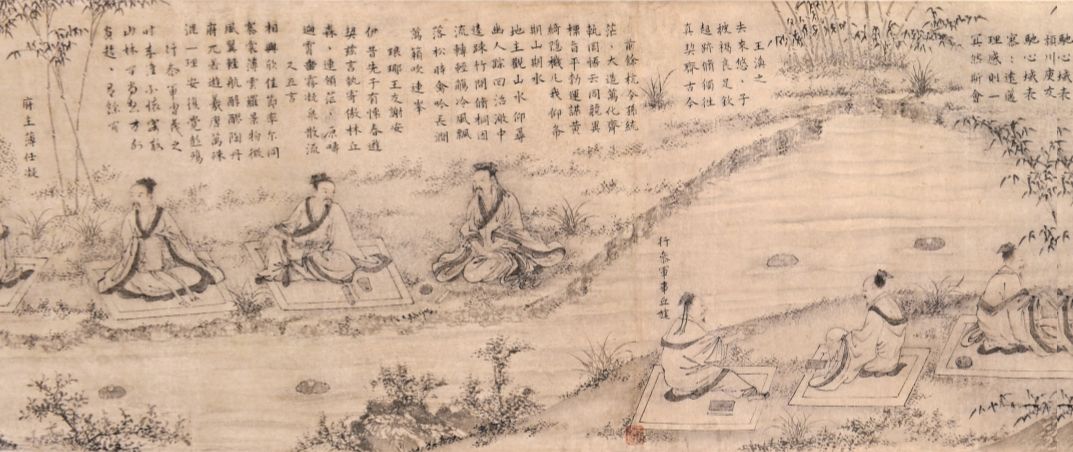 馳心域表
穎川庾友
馳心域表
寥〻遠邁
理感則一
冥然斯會
王渙之
去來悠〻子
披褐良足欽
超跡脩獨往
真契齊古今
前餘杭令孫統
茫〻大造萬化齊
軌罔悟玄同競異
標旨平勃運謀黃
綺隱機凡我仰希
期山期水
地主觀山水仰尋
幽人踪回沼激中
逵疎竹間脩桐因
流轉輕觴冷風飄
落松時禽吟長澗
萬籟吹連峯
琅琊王友謝安
伊昔先子有懷春遊
契茲言執寄傲林丘
森〻連嶺茫〻原疇
迥霄垂霧凝泉散流
又五言
相與欣佳節率尔同
褰裳薄雲羅景物微
風翼輕航醇醪陶丹
府兀若遊羲唐萬殊
混一理安復覺彭殤
行參軍曹茂之
時來誰不懷寄散
山林間尚想方外
賓超〻有餘閒
府主簿任凝
行參軍事丘髦